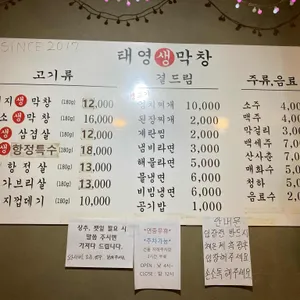 SINCE 2017
태영 생 막창
고기류
곁드림
주류, 음료
지 생 막창 (180g) 12,000
소 생 막창 (180g) 16,000
생 삼겹살 (180g) 12,000
생 항정특수 (180g) 18,000
항정살 (180g) 13,000
가브리살 (180g) 13,000
지껍데기 (180g) 10,000
찌개 10,000
된장찌개 2,000
계란찜 2,000
냄비라면 3,000
해물라면 5,000
물냉면 6,000
비빔냉면 6,000
공기밥 1,000
소주 4,
맥주 4,
막걸리 3,
백세주 7,
산사춘 7,
매화수 5,
청하 5,
음료수 2,
상추, 깻잎 필요 시
말씀 주시면
가져다 드립니다.
주차가능
OPEN:
CLOSE:
안내문
손소독 해주세요